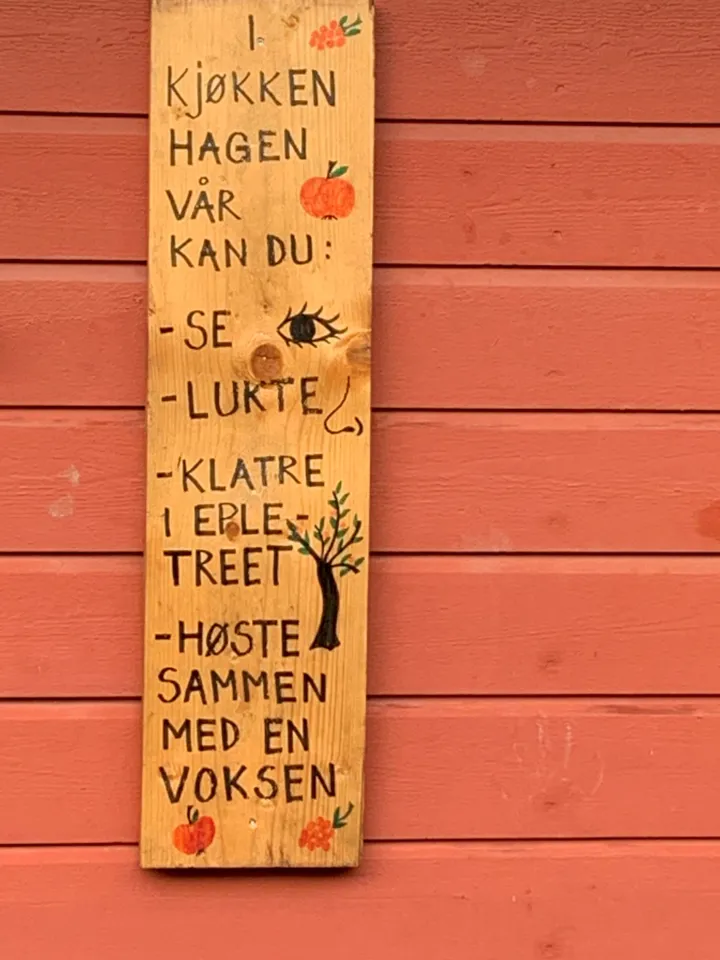 I
KJØKKEN
HAGEN
VÅR
KAN DU:
-SE
-LUKTE
-KLATRE
I EPLE-
TREET
-HØSTE
SAMMEN
MED EN
VOKSEN